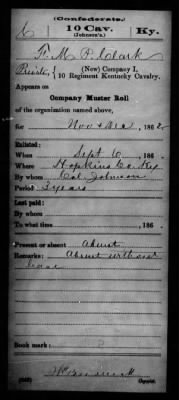 (Confederate.)
C | 10 Cav. | Ky.
(Johnson's.)
F. M. P. Clark
Private, { (New) Company I,
10 Regiment Kentucky Cavalry.
Appears on
Company Muster Roll
of the organization named above,
for Nov & Dec, 1862.
Enlisted:
When Sept 6, 186 .
Where Hopkins Co Ky
By whom Col. Johnson
Period 3 years
Last paid:
By whom
To what time , 186 .
Present or absent Absent
Remarks: Absent without
leave
Book mark:
Copyist.